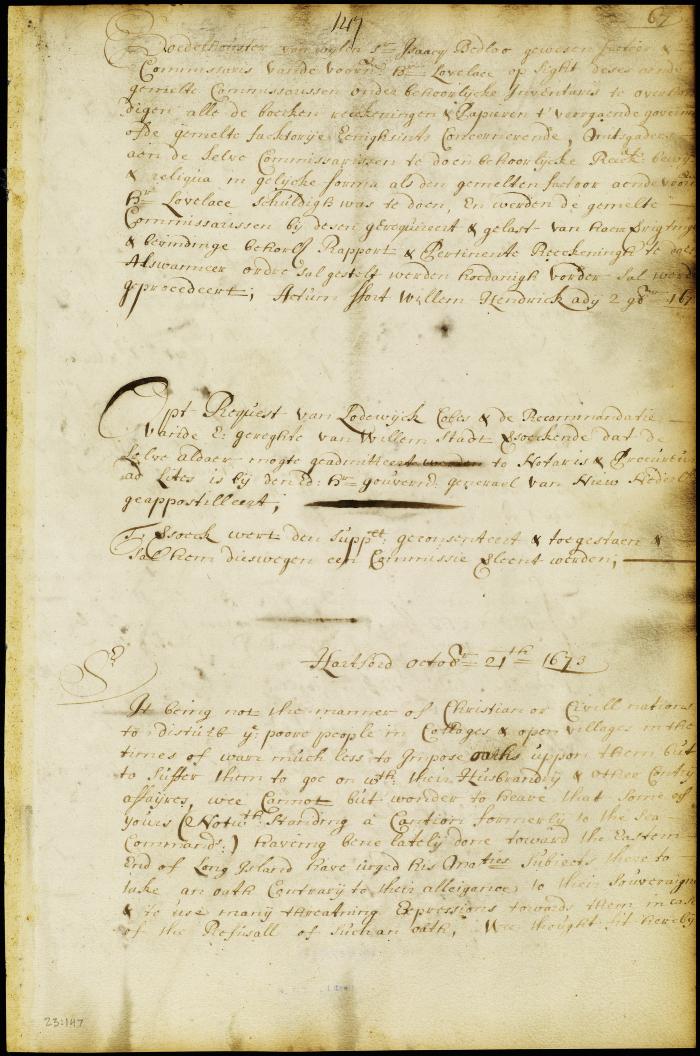 147
67
Boedelhouster van wylen sr Isaacq Bedloo gewesen factoor &
Commissaris vande voorn: hr Lovelace op sight deses aende
gemelte Commissarissen onder behoorlycke Inventaris te overhan
digen alle de boecken reeckeningen & Papieren t'voorgaende
ofde gemelte factorije Eenighsints Concernerende, Mitsgaders
aen de selve Commissarissen te doen behoorlycke Reeck:
& reliqua in gelycke forma als den gemelten factoor aende
hr Lovelace schuldigh was te doen, En werden de gemelte
Commissarissen bij desen gerequireert & gelast van haer
& bevindinge behorl: Rapport & Pertinente Reeckeningh te doen
Alswanneer ordre sal gestelt werden hoedanigh vorder sal werd
geprocedeert; Actum ffort Willem Hendrick ady 2 9br 167
Opt Request van Lodewyck Cobes & de Recommandatie
vande E: gereghte van Willem Stadt versoeckende dat de
selve aldaer mogte geadmitteert werden to Notaris & Procureur
ad Lites is bij den Ed: hr gouvernr: generael van Niew Nederl
geappostilleert;
T' versoeck wert den suppct: geconsenteert & toegestaen &
sal hem dieswegen een Commissie verleent werden;
Hartford octobr 21th 1673
Sr
It being not the manner of Christian or Civill nations
to disturb ye poore people in Cottages & open villages in the
times of warr much less to Impose oaths uppon them but
to suffer them to goe on wth their Husbandry & other Contry
affayres, wee Cannot but wonder to heare that some of
yours (Notwth Standing a Caution formerly to the Sea
Commandr:) haveing bene lately done toward the Eastern
End of Long Island have urged his Maties Subjects there to
take an oath Contrary to their alleigance to their Souveraigne
& to use many threatning Expressions towards them in case
of the Refusall of such an oath, Wee thought fit hereby
23:147